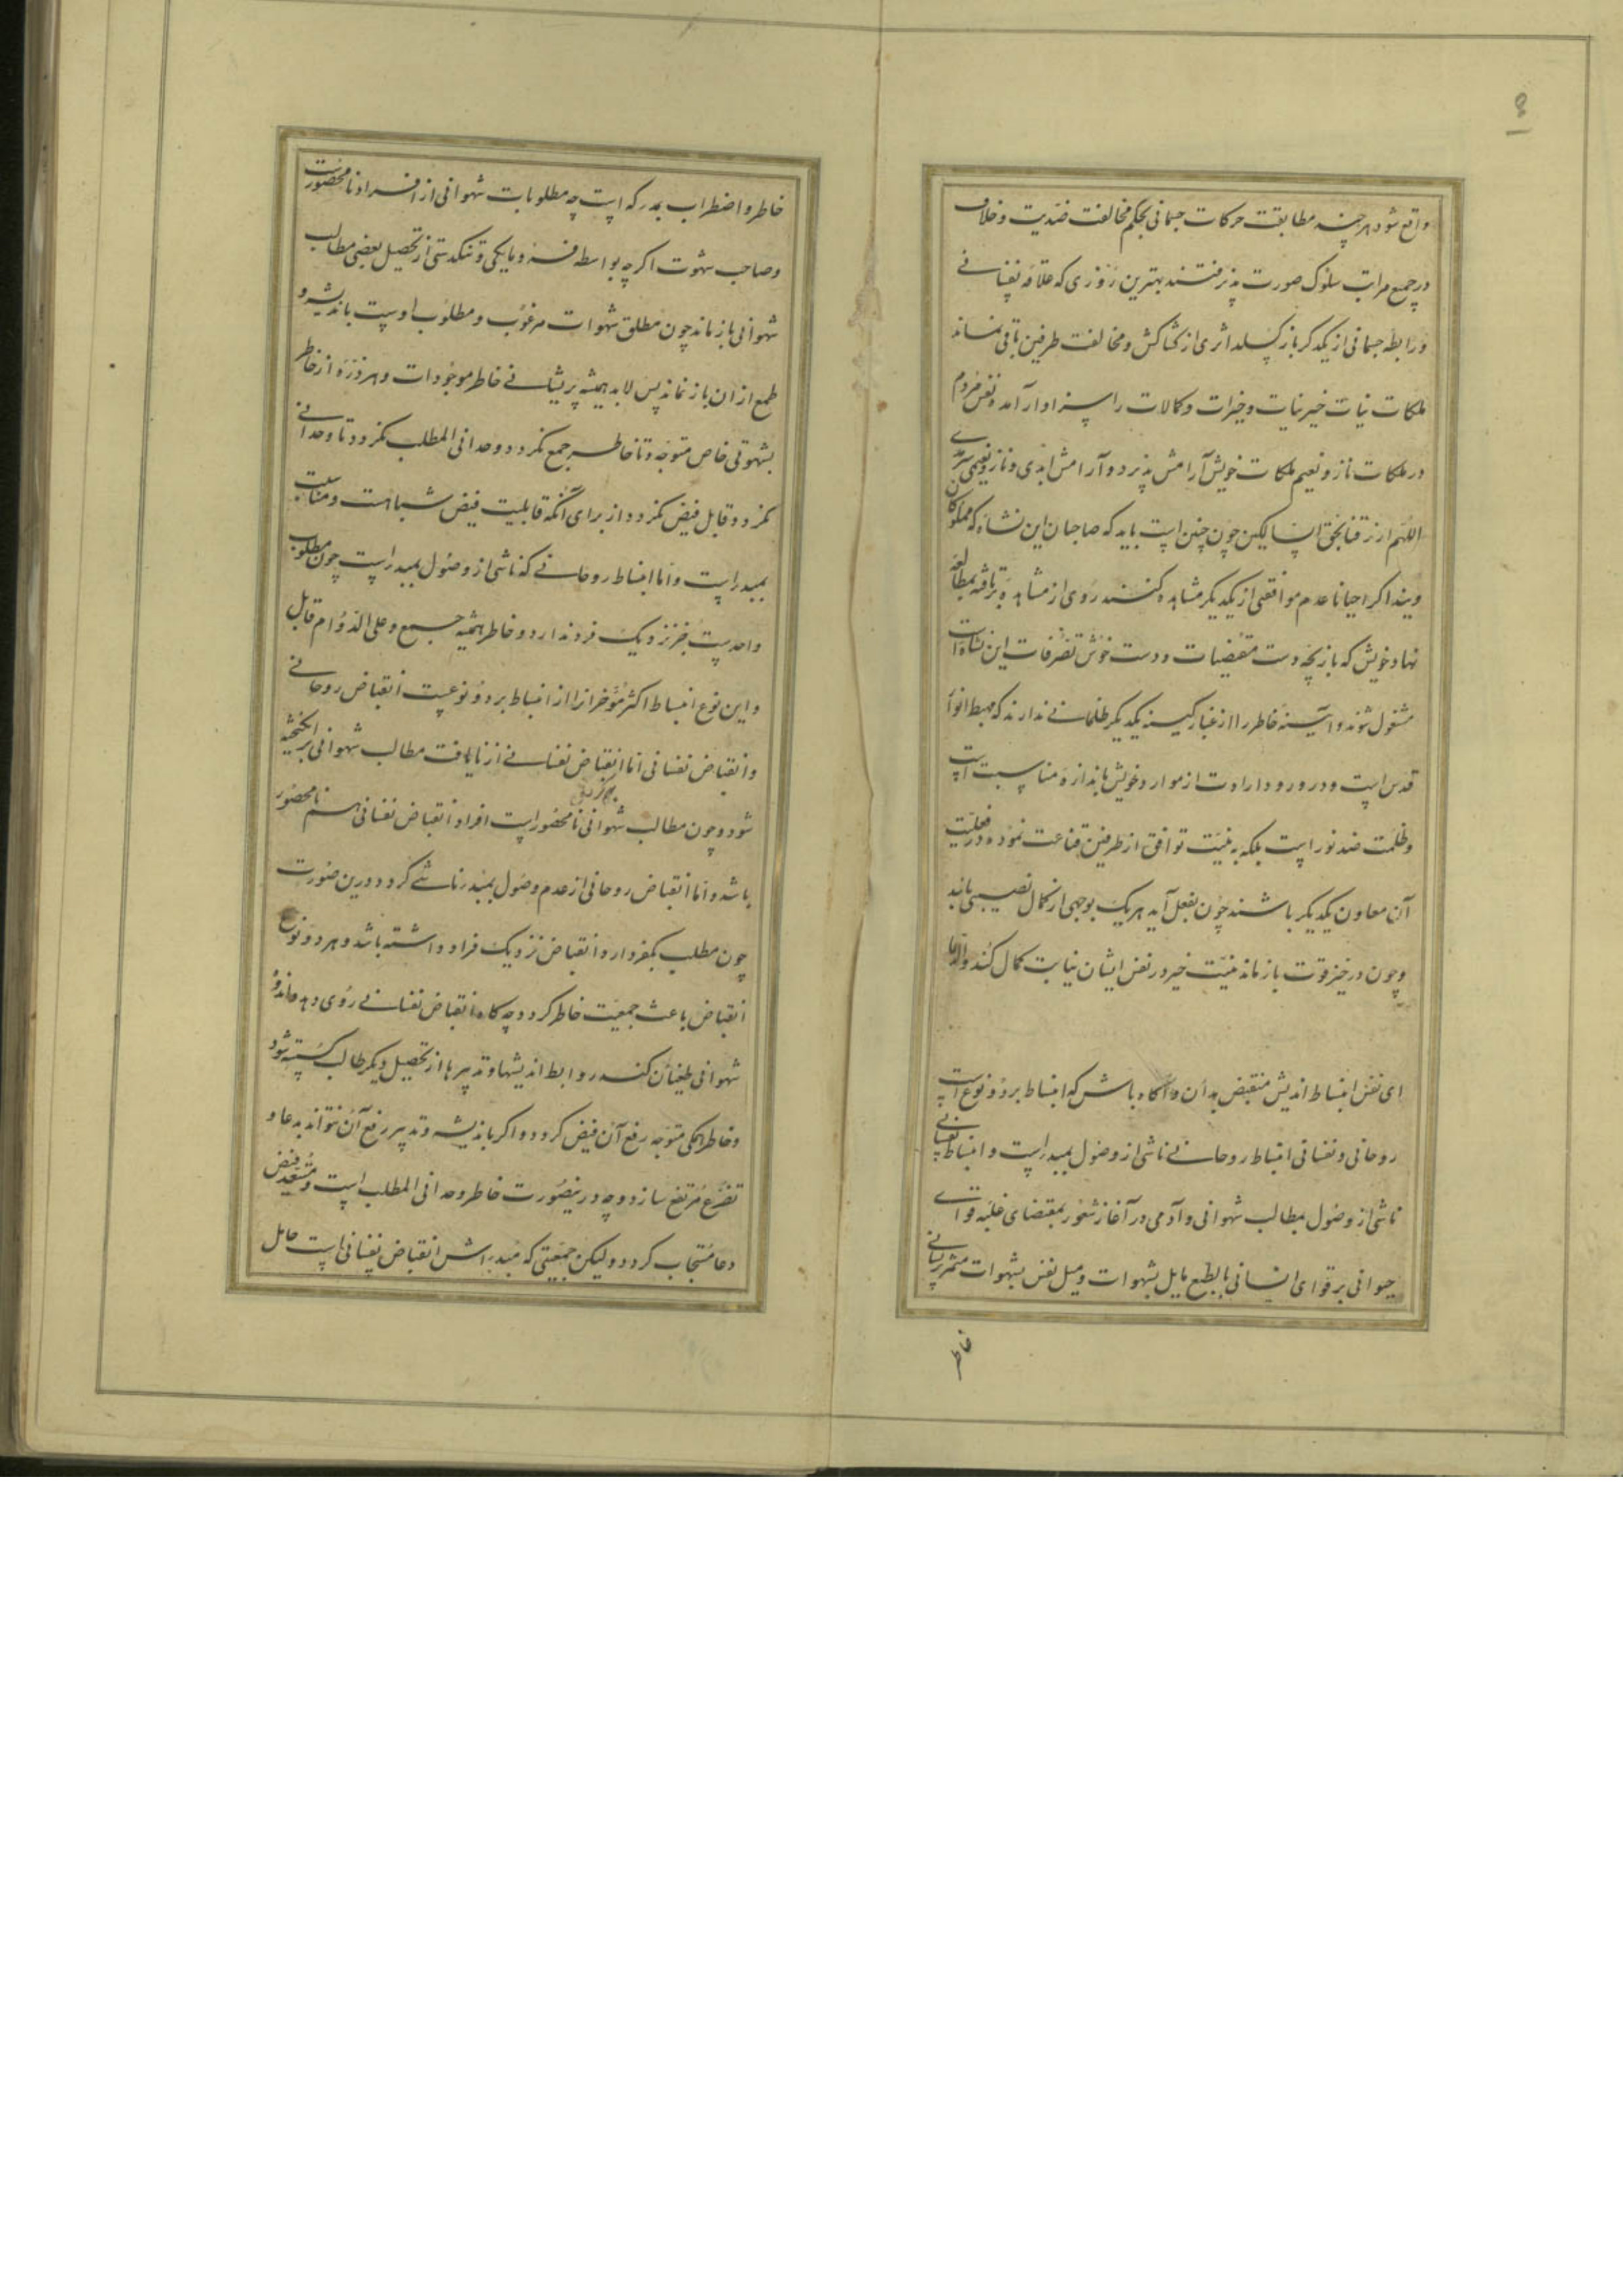 واقع شود هرچند مطابقت حرکات جسمانی بحکم مخالفت ضدیت و خلاف
در جمیع مراتب سلوک صورت پذیرفتند بهترین روزی که علاقه نفسانی
و رابطه جسمانی از یکدکر باز کسلد اثری از کشاکش و مخالفت طرفین باقی نماند
ملکات نیات خیر نیات و خیرات و کمالات را سزاوار آمد و نفس مردم
در ملکات ناز و نعیم ملکات خویش آرامش پذیرد و آرامش ابدی و ناز و نعیمی سرمدی
اللهم ارزقنا بحق لیکن چون چنین است باید که صاحبان این نشأه که مملوکان
ویند اکر احیانا عدم موافقتی از یکدیکر مشاهده کنند روی از مشاهده برتافته بمطالعه
نهاد خویش که بازیچه دست مقتضیات و دست خوش تصرفات این نشأه است
مشغول شوند و آیینه خاطر را از غبار کینه یکدیکر ظلمانی ندارند که مهبط انوار
قدس است و در ورود ارادت از موارد خویش باندازه مناسبت است
و ظلمت ضد نور است بلکه به نیت توافق از طرفین قناعت نموده در فعلیت
آن معاون یکدیکر باشند چون بفعل آید هر یک بوجهی از کمال نصیبی یابند
و چون در حیز قوت بازماند نیت خیر در نفس ایشان نیابت کمال کند
ای نفس انبساط اندیش منقبض بدان و آکاه باش که انبساط بر دو نوع است
روحانی و نفسانی انبساط روحانی ناشی از وصول بمبدا است و انبساط نفسانی
ناشی از وصول بمطالب شهوانی و آدمی در آغاز شعور بمقتضای غلبه قوای
حیوانی بر قوای انسانی بالطبع مایل بشهوات و میل نفس بشهوات مثمر پریشانی
خاطر
خاطر و اضطراب مدرکه است چه مطلوبات شهوانی از افراد نامحصور است
و صاحب شهوت اکرچه بواسطه فرومایکی و تنکدستی از تحصیل بعضی مطالب
شهوانی باز ماند چون مطلق شهوات مرغوب و مطلوب اوست باندیشه و
طمع از ان باز نماند پس لابد همیشه پریشانی خاطر موجود است و هر ذره از خاطر
بشهوتی خاص متوجه و تا خاطر جمع نکردد وحدانی المطلب نکردد و تا وحدانی
نکردد قابل فیض نکردد از برای آنکه قابلیت فیض شباهت و مناسبت
بمبدا است و اما انبساط روحانی که ناشی از وصول بمبدا است چون مطلوب
واحد است جز نزدیک فرد ندارد و خاطر همیشه جمع و علی الدوام قابل
و این نوع انبساط اکثر مؤخر از انبساط بر دو نوعست انقباض روحانی
و انقباض نفسانی اما انقباض نفسانی از نایافت مطالب شهوانی برانکیخته
شود و چون مطالب شهوانی نامحصور است افراد انقباض نفسانی هم نامحصور
باشد و اما انقباض روحانی از عدم وصول بمبدا ناشی کردد و درین صورت
چون مطلب یکفرد دارد انقباض نیز یک فراد داشته باشد و هر دو نوع
انقباض باعث جمعیت خاطر کردد چه کاه انقباض نفسانی روی دهد
شهوانی طغیان کند روابط اندیشها و تدبیرها از تحصیل دیکر مطالب کسسته شود
و خاطر همکی متوجه رفع آن فیض کردد و اکر باندیشه و تدبیر رفع آن نتواند بدعا و
تضرع مرتفع سازد و چه درینصورت خاطر وحدانی المطلب است و مستعد فیض
دعا مستجاب کردد و لیکن جمعیتی که مبداش انقباض نفسانی است